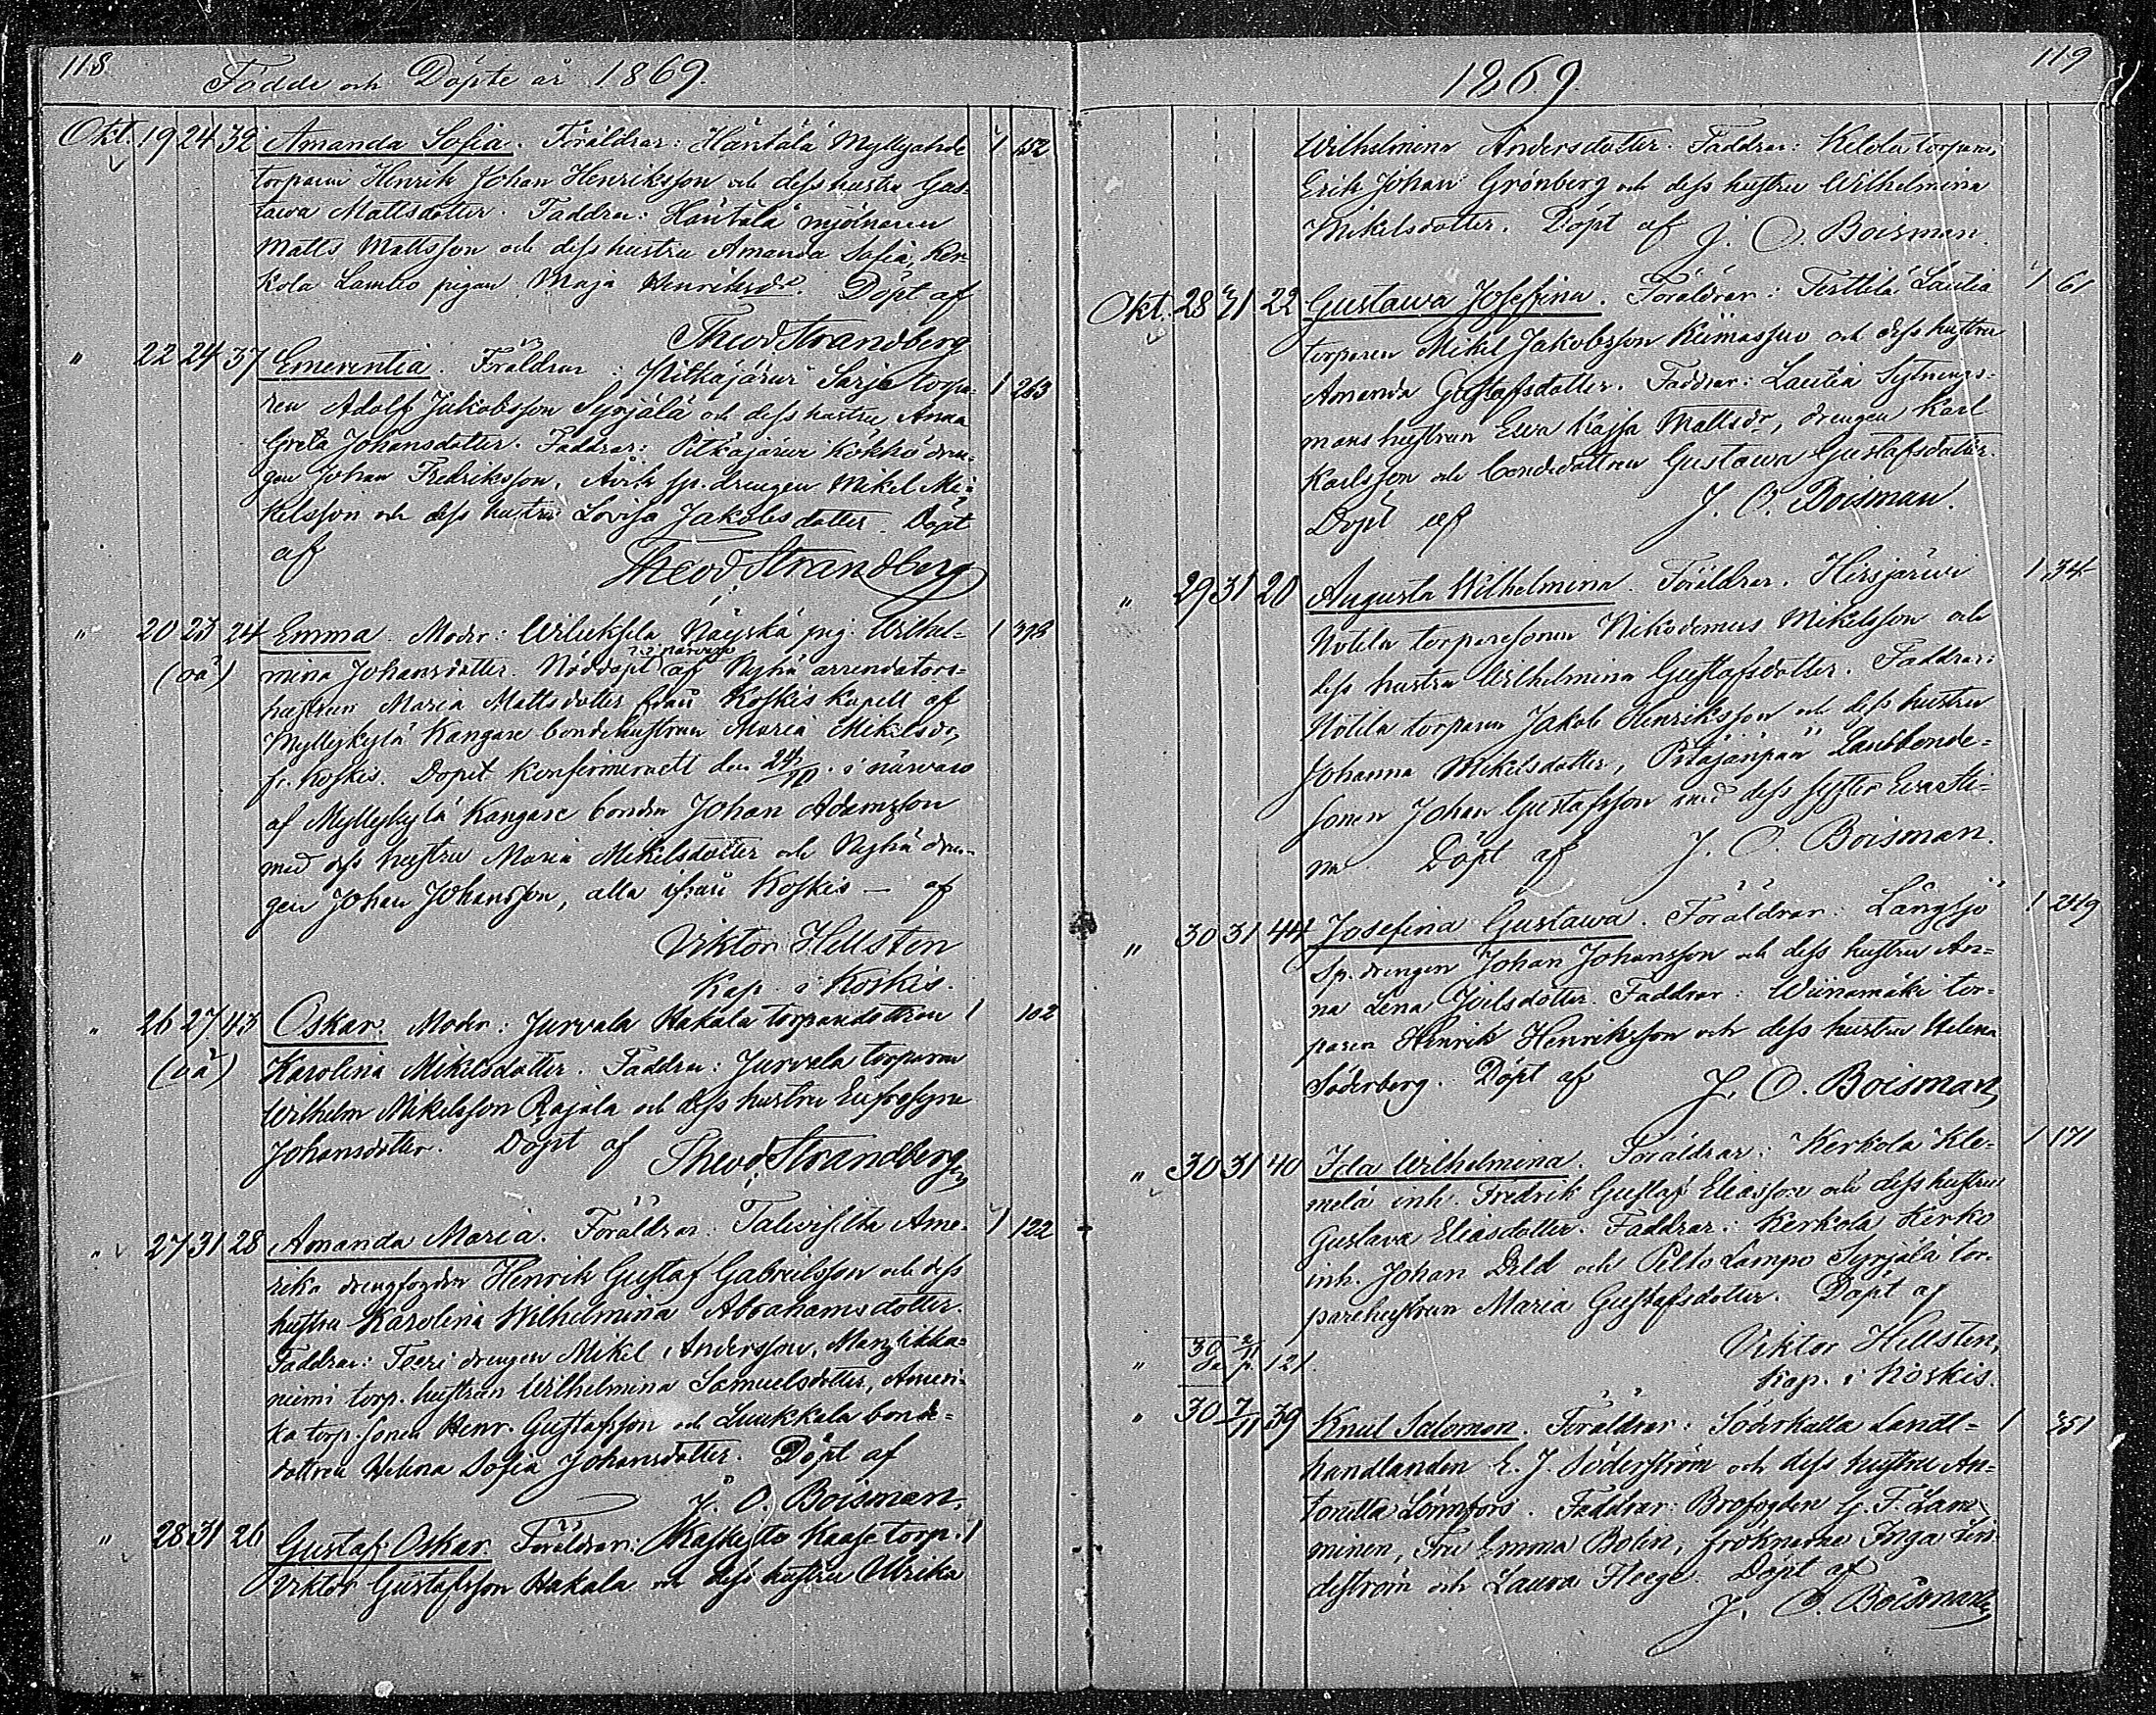 118
Födde och Döpte år 1869.
Okt. 19 24 32 Amanda Sofia. Föräldrar: Häntälä Myllyahde 1 152
torparen Henrik Johan Henriksson och dess hustru Gus-
tawa Mattsdotter. Faddrar: Häntälä mjölnaren
Matts Mattsson och dess hustru Amanda Sofia, Ker-
kola Lambo pigan Maja Henriksdr. Döpt af
Theod Strandberg
" 22 24 37 Emerentia. Föräldrar: Pitkäjärwi Sarja torpa- 1 263
ren Adolf Jakobsson Syrjälä och dess hustru Anna
Greta Johansdotter. Faddrar: Pitkäjärwi Kökkö dren-
gen Johan Fredriksson, Avik sp. drengen Mikel Mi-
kelsson och dess hustru Lovisa Jakobsdotter. Döpt
af Theod Strandberg
" 20 23 24 Emma. Moder: Wiluksela Näyskä pig. Wilhel- 1 398
(oä) mina Johansdotter. Nöddöpt i närvaro af Nyhä arrendators-
hustrun Maria Mattsdotter från Koskis Kapell af
Myllykylä Kangare bondehustrun Maria Mikelsdr,
fr. Koskis. Dopet konfirmeradt den 24/10 i närvaro
af Myllykylä Kangare bonden Johan Adamsson
med dess hustru Maria Mikelsdotter och Nyhä dren-
gen Johan Johansson, alla ifrån Koskis — af
Viktor Hellsten
Kap. i Koskis.
" 26 27 43 Oskar. Moder: Jurvala Hakala torparedottren 1 102
(oä) Karolina Mikelsdotter. Faddrar: Jurvala torparen
Wilhelm Mikelsson Rajala och dess hustru Eufrosyne
Johansdotter. Döpt af Theod Strandberg
" 27 31 28 Amanda Maria. Föräldrar: Talvisilta Ame- 1 122
rika drengfogden Henrik Gustaf Gabrielsson och dess
hustru Karolina Wilhelmina Abrahamsdotter.
Faddrar: Teeri drengen Mikel Andersson,
niemi torp. hustrun Wilhelmina Samuelsdotter, Ameri-
ka torp. sonen Henr. Gustafsson och Luukkala bonde-
dottren Helena Sofia Johansdotter. Döpt af
J. O. Boisman.
" 28 31 26 Gustaf Oskar. Föräldrar: Kaskisto Kaase torp. 1
Viktor Gustafsson Hakala och dess hustru Ulrika
119
1869.
Wilhelmina Andersdotter. Faddrar: Kelola torparen
Erik Johan Grönberg och dess hustru Wilhelmina
Mikelsdotter. Döpt af J. O. Boisman.
Okt. 28 31 22 Gustawa Josefina. Föräldrar: Terttilä Lautia 1 61
torparen Mikel Jakobsson Keimassuo och dess hustru
Amanda Gustafsdotter. Faddrar: Lautia Sytnings-
mans hustrun Ewa Kajsa Mattsdr, drengen Karl
Karlsson och bondedottren Gustawa Gustafsdotter.
Döpt af J. O. Boisman.
" 29 31 20 Augusta Wilhelmina. Föräldrar. Hirsjärwi 1 34
Notila torparesonen Nikodemus Mikelsson och
dess hustru Wilhelmina Gustafsdotter. Faddrar:
Notila torparen Jakob Henriksson och dess hustru
Johanna Mikelsdotter, Pitäjänpää Landbonde-
sonen Johan Gustafsson med dess syster Evasti-
na. Döpt af J. O. Boisman.
" 30 31 44 Josefina Gustawa. Föräldrar: Långsjö 1 249
sp. drengen Johan Johansson och dess hustru An-
na Lena Joelsdotter. Faddrar: Wiinamäki tor-
paren Henrik Henriksson och dess hustru Helena
Söderberg. Döpt af J. O. Boisman
" 30 31 40 Ida Wilhelmina. Föräldrar: Kerkola Kle- 1 171
melä inh. Fredrik Gustaf Eliasson och dess hustru
Gustava Eliasdotter. Faddrar: Kerkola Kerko
inh. Johan Dild och Pelto Lampo Syrjälä tor-
parehustrun Maria Gustafsdotter. Döpt af
Viktor Hellsten,
Kap. i Koskis.
" 30 2/11 121
" 30 7/11 39 Knut Salomon. Föräldrar: Söderkulla Landt- 1 351
handlanden E. J. Söderström och dess hustru An-
tonilla Lönnfors. Faddrar: Brofogden G. F. Lam-
minen, Fru Emma Bolin, fröknarne Inga Lin-
deström och Laura Heege. Döpt af
J. O. Boisman